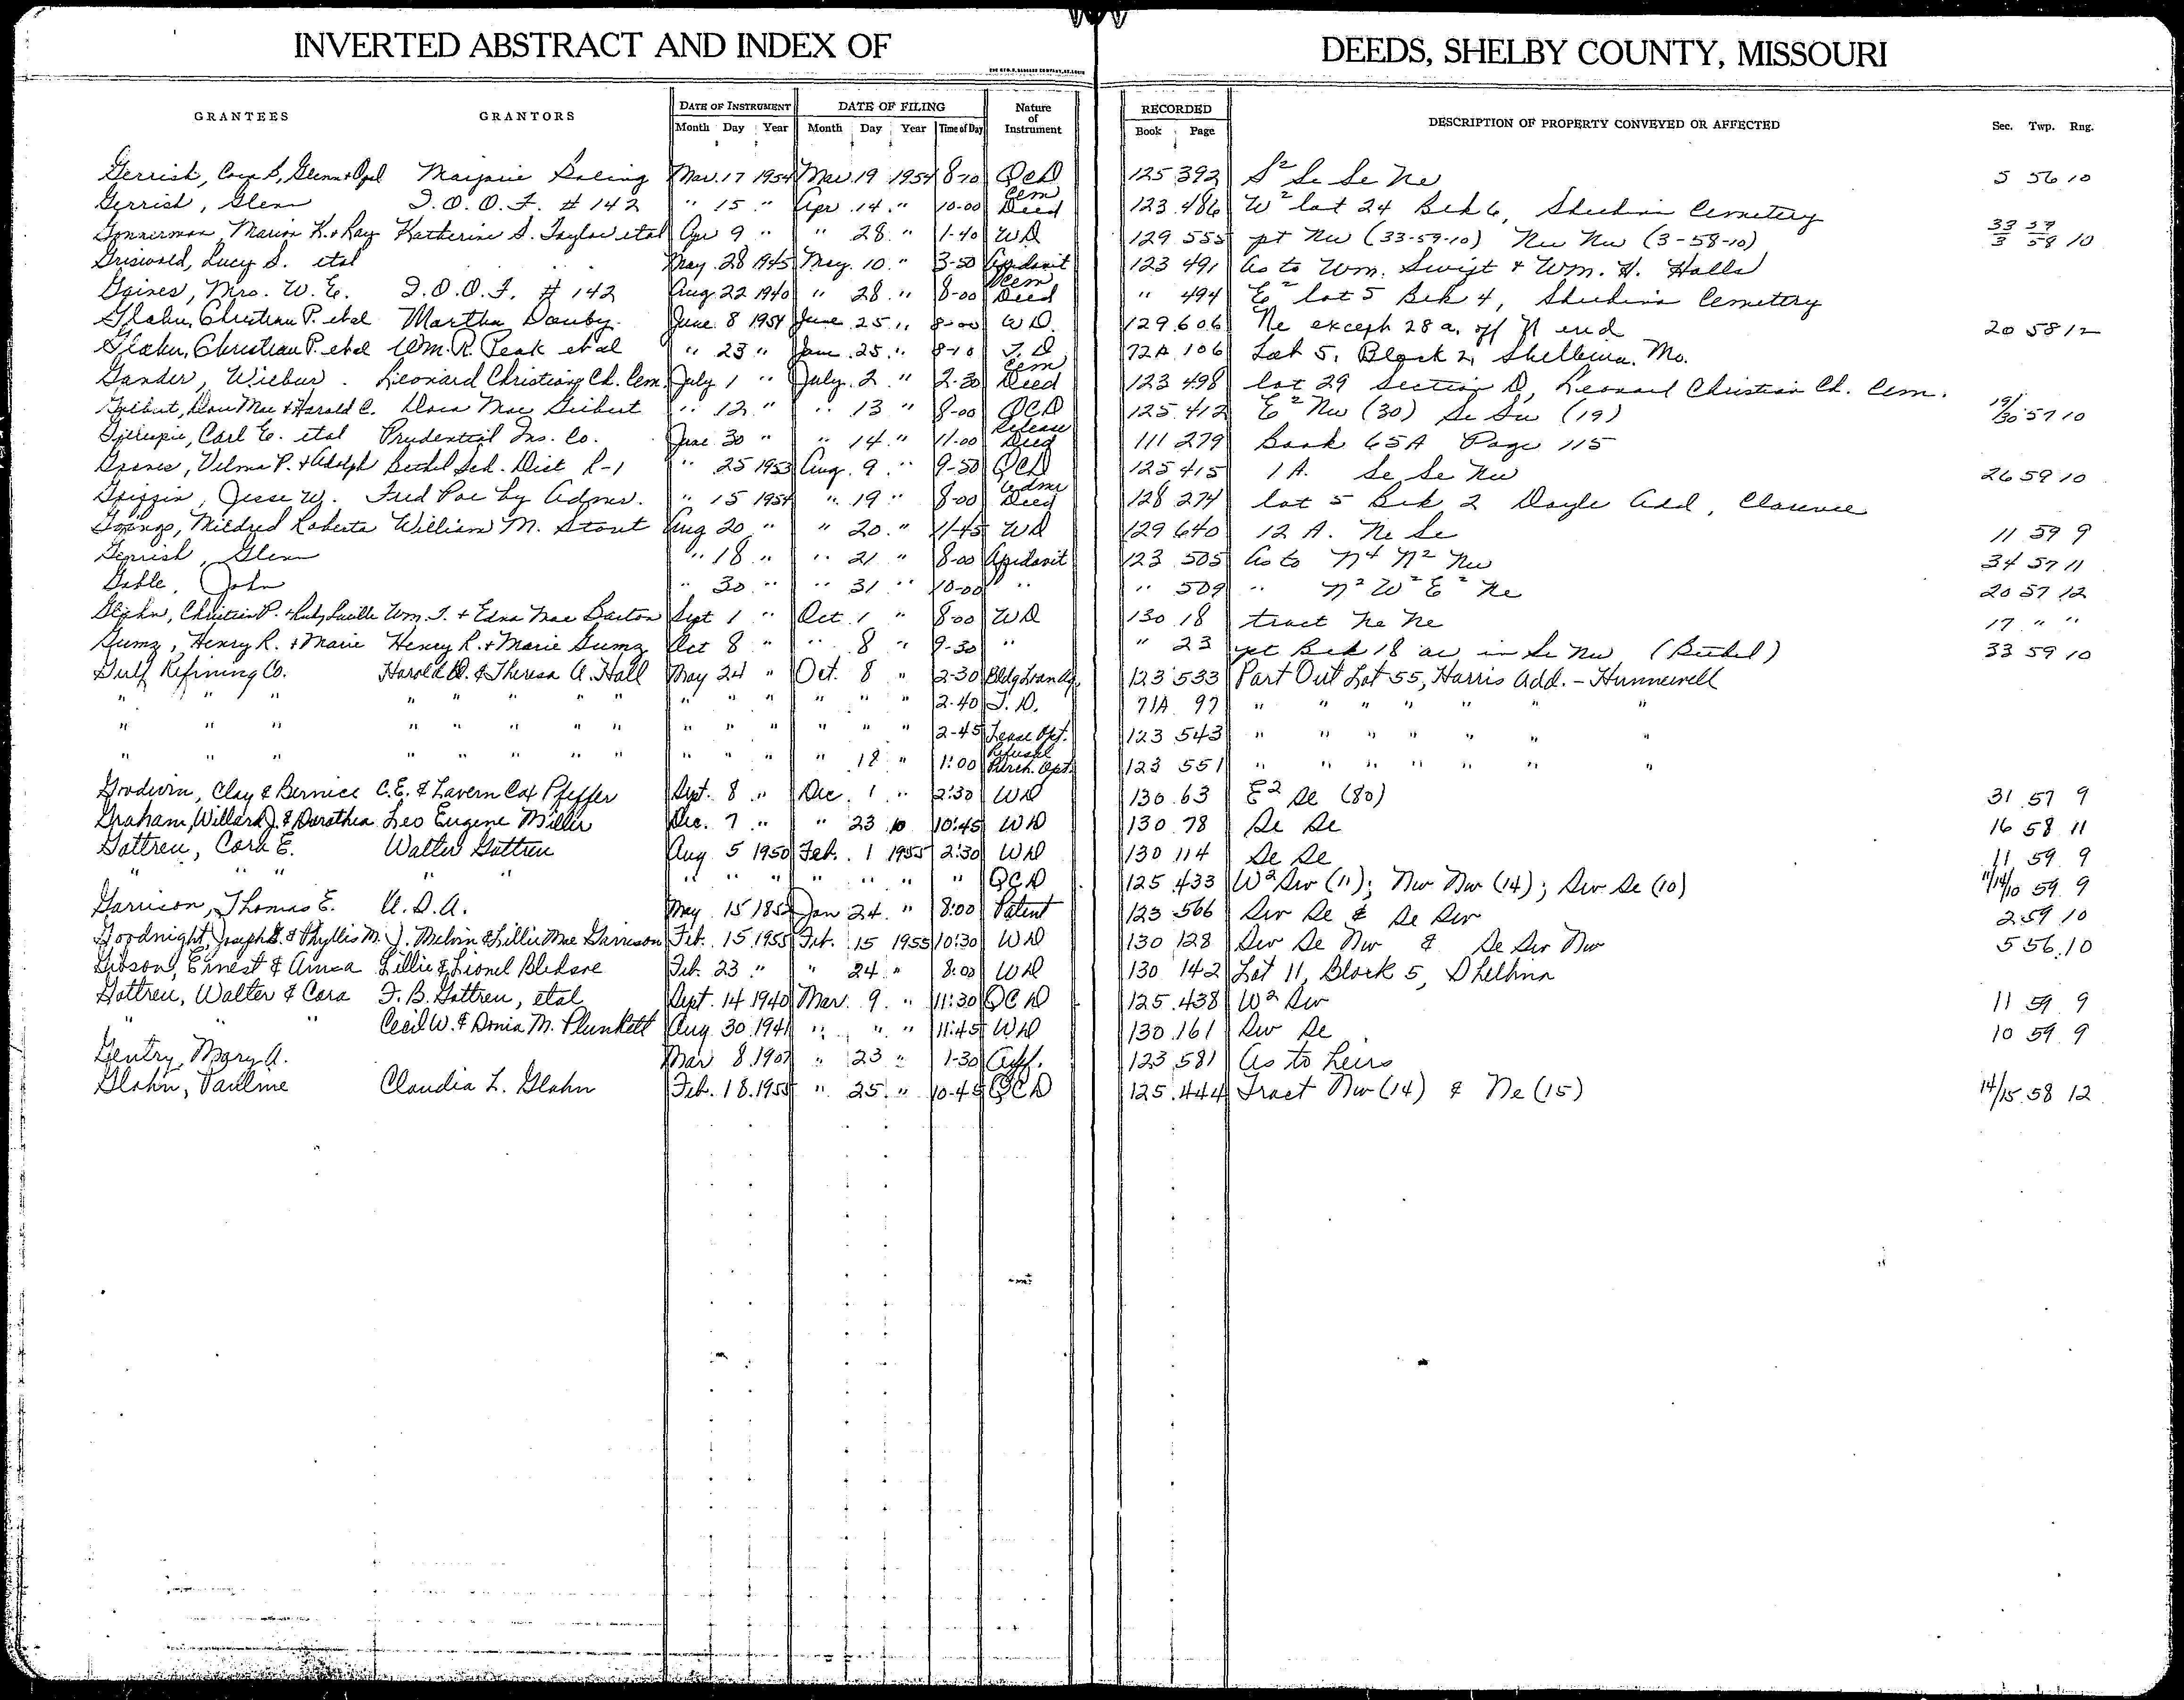 INVERTED ABSTRACT AND INDEX OF DEEDS, SHELBY COUNTY, MISSOURI
GRANTEES GRANTORS DATE OF INSTRUMENT DATE OF FILING Nature of Instrument RECORDED DESCRIPTION OF PROPERTY CONVEYED OR AFFECTED Sec. Twp. Rng.
Month Day Year Month Day Year Time of Day Book Page
Gerrish, Cora S, Glenn & Opal Marjorie Mar. 17 1954 Mar. 19 1954 8-10 QCD 125 392 S² Se Se Ne 5 56 10
Gerrish, Glenn I. O. O. F. # 142 " 15 " Apr. 14 " 10-00 Cem Deed 123 486 W² lot 24 Blk 6, Cemetery
Gonnerman, Marion K. & Ray Katherine S. Taylor etal Apr 9 " " 28 " 1-40 WD 129 555 pt Nw (33-59-10) Nw Nw (3-58-10) 33/3 59/58 10
Griswold, Lucy S. etal May 28 1945 May. 10 " 3-50 Affidavit 123 491 As to Wm. Swift & Wm. H. Halls
Gaines, Mrs. W. E. I.O.O.F. # 142 Aug. 22 1940 " 28 " 8-00 Cem Deed " 494 E² lot 5 Blk 4, Cemetery
Glahn, Christian P. etal Martha Danby June 8 1954 June 25 " 8-00 WD. 129 606 Ne except 28 a. off N end 20 58 12
Glahn, Christian P. etal Wm. R. Peak et al " 23 " June 25 " 8-10 T. D 72A 106 Lot 5, Block 2, Shelbina, Mo.
Gander, Wilbur Leonard Christian Ch. Cem. July 1 " July. 2 " 2-30 Cem Deed 123 498 lot 29 Section D, Leonard Christian Ch. Cem.
Gilbert, Dora Mae & Harold C. Dora Mae Gilbert " 12 " " 13 " 8-00 QCD 125 412 E² Nw (30) Se Sw (19) 19/30 57 10
Gillespie, Carl E. etal Prudential Ins. Co. June 30 " " 14 " 11-00 Release Deed 111 279 Book 65A Page 115
Graves, Velma P. & Adolph Bethel Sch. Dist R-1 " 25 1953 Aug. 9 " 9-50 QCD 125 415 1A. Se Se Nw 26 59 10
Griffin, Jesse W. Fred Poe by Admr. " 15 1954 " 19 " 8-00 Admr Deed 128 274 lot 5 Blk 2 Doyle Add, Clarence
Goings, Mildred Roberta William M. Stout Aug 20 " " 20 " 11-45 WD 129 640 12 A. Ne Se 11 59 9
Gerrish, Glenn " 18 " " 21 " 8-00 Affidavit 123 505 As to N⁴ N² Nw 34 57 11
Gable, John " 30 " " 31 " 10-00 " " 509 " N² W² E² Ne 20 57 12
Glahn, Christian P. & Ruby Lucille Wm. T. & Edna Mae Barton Sept 1 " Oct. 1 " 8-00 WD 130 18 tract Ne Ne 17 " "
Gumz, Henry R. & Marie Henry R. & Marie Gumz Oct 8 " " 8 " 9-30 " " 23 pt Blk 18 in Se Nw (Bethel) 33 59 10
Gulf Refining Co. Harold D. & Theresa A. Hall May 24 " Oct. 8 " 2-30 Bldg Loan Ag. 123 533 Part Out Lot 55, Harris Add. - Hunnewell
" " " " " " " " " " " " " " 2.40 T. D. 71A 97 " " " " " "
" " " " " " " " " " " " " " 2-45 Lease Opt. 123 543 " " " " " "
" " " " " " " " " " " " 18 " 1:00 Refusal Purch. Opt. 123 551 " " " " " "
Goodwin, Clay & Bernice C. E. & Lavern Cox Pfeffer Sept. 8 " Dec. 1 " 2:30 WD 130 63 E² Se (80) 31 57 9
Graham, Willard J. & Dorothea Leo Eugene Miller Dec. 7 " " 23 10:45 WD 130 78 Se Se 16 58 11
Gottreu, Cora E. Walter Gottreu Aug 5 1950 Feb. 1 1955 2:30 WD 130 114 Se Se 11 59 9
" " " " " " " " " " " QCD 125 433 W² Sw (11); Nw Nw (14); Sw Se (10) 11/14/10 59 9
Garrison, Thomas E. U. S. A. May 15 Jan 24 " 8:00 Patent 123 566 Sw Se & Se Sw 2 59 10
Goodnight, Joseph & Phyllis M. J. Melvin & Lillie Mae Garrison Feb. 15 1955 Feb. 15 1955 10:30 WD 130 128 Sw Se Nw & Se Sw Nw 5 56 10
Gibson, Ernest & Lillie & Lionel Bledsoe Feb. 23 " " 24 " 8:00 WD 130 142 Lot 11, Block 5, Shelbina
Gottreu, Walter & Cora F. B. Gottreu, etal Sept. 14 1940 Mar. 9 " 11:30 QCD 125 438 W² Sw 11 59 9
" " " Cecil W. & Donia M. Plunkett Aug. 30 1941 " " " 11:45 WD 130 161 Sw Se 10 59 9
Gentry, Mary A. Mar 8 1907 " 23 " 1-30 Aff. 123 581 As to heirs
Glahn, Pauline Claudia L. Glahn Feb. 18 1955 " 25 " 10-45 QCD 125 444 Tract Nw (14) & Ne (15) 14/15 58 12